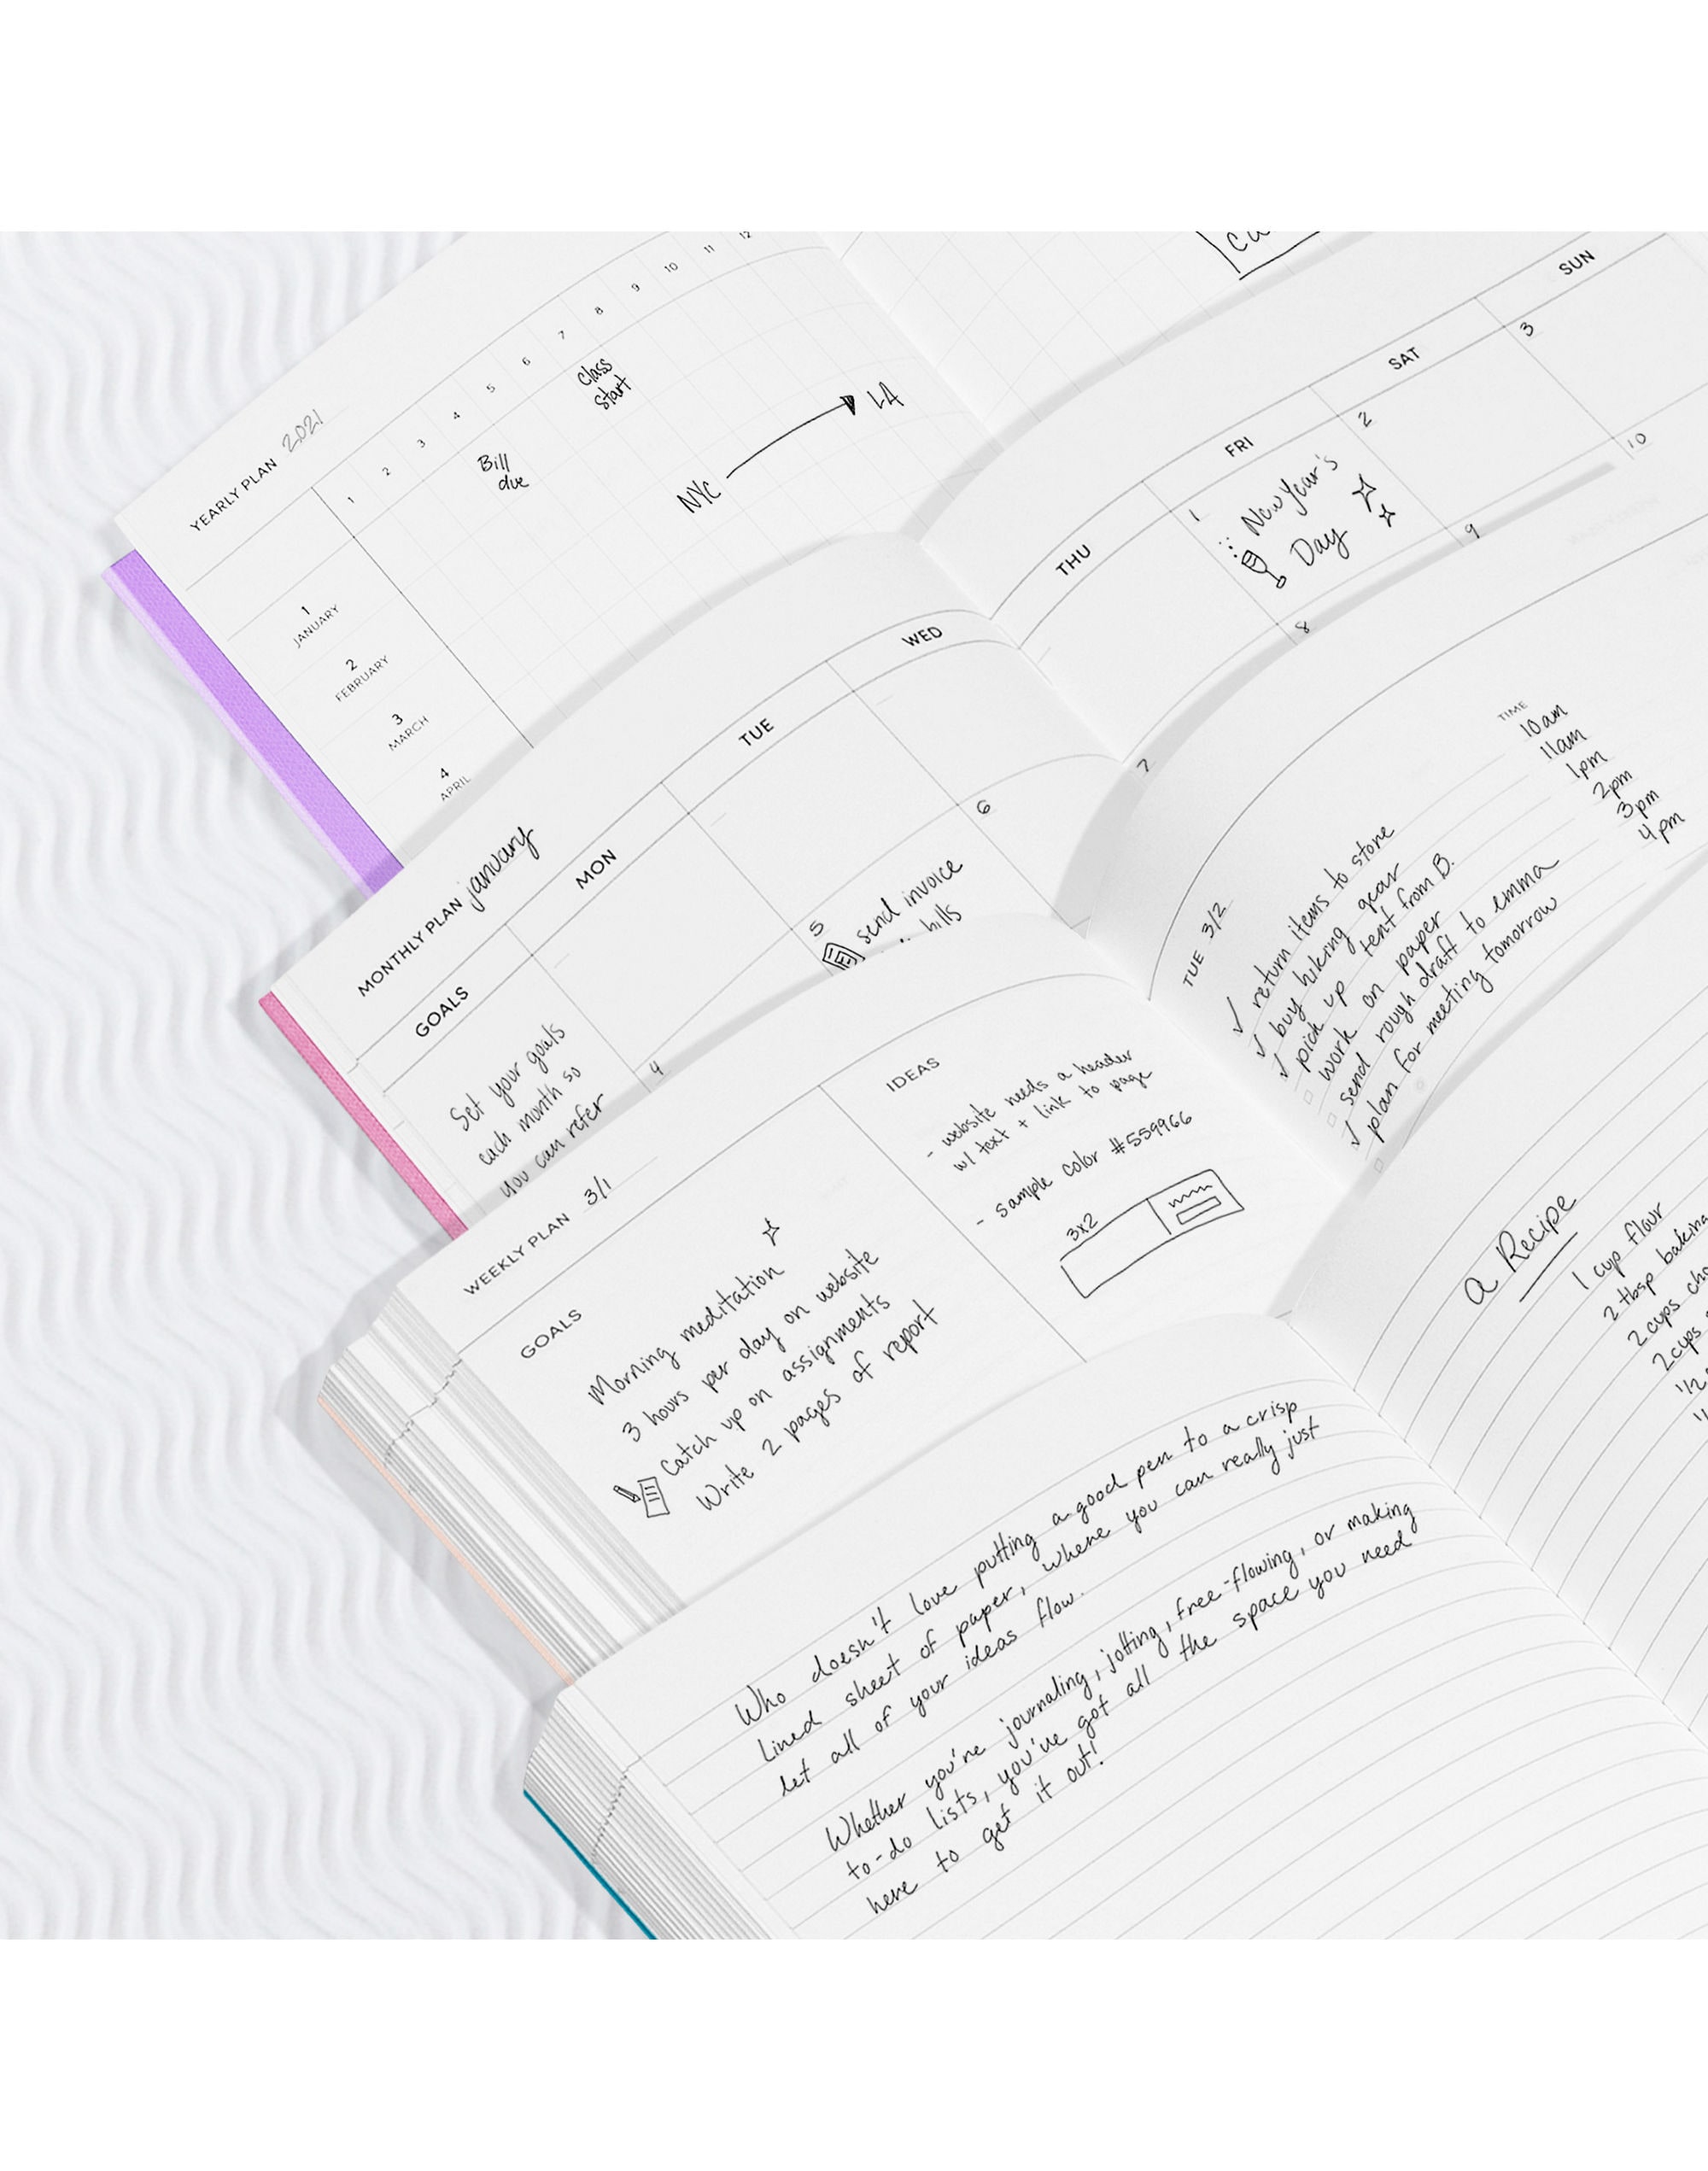 YEARLY PLAN 2021
1 2 3 4 5 6 7 8 9 10 11 12
1
JANUARY
2
FEBRUARY
3
MARCH
4
APRIL
Class
start
Bill
due
NYC
LA
MONTHLY PLAN january
GOALS
MON
TUE
WED
Set your goals
each month so
you can refer
4
5
6
send invoice
hills
THU
FRI
SAT
SUN
1
2
3
New Year's
Day
7
8
9
10
WEEKLY PLAN 3/1
GOALS
Morning meditation
3 hours per day on website
Catch up on assignments
Write 2 pages of report
IDEAS
- website needs a header
w/ text + link to page
- sample color #559966
3x2
TUE 3/2
TIME
return items to store 10am
buy hiking gear 11am
pick up tent from B. 1pm
work on paper 2pm
send rough draft to emma 3pm
plan for meeting tomorrow 4pm
Who doesn't love putting a good pen to a crisp
lined sheet of paper, where you can really just
let all of your ideas flow.
Whether you're journaling, jotting, free-flowing, or making
to-do lists, you've got all the space you need
here to get it out!
a Recipe
1 cup flour
2 tbsp baking
2 cups
2 cups
1/2